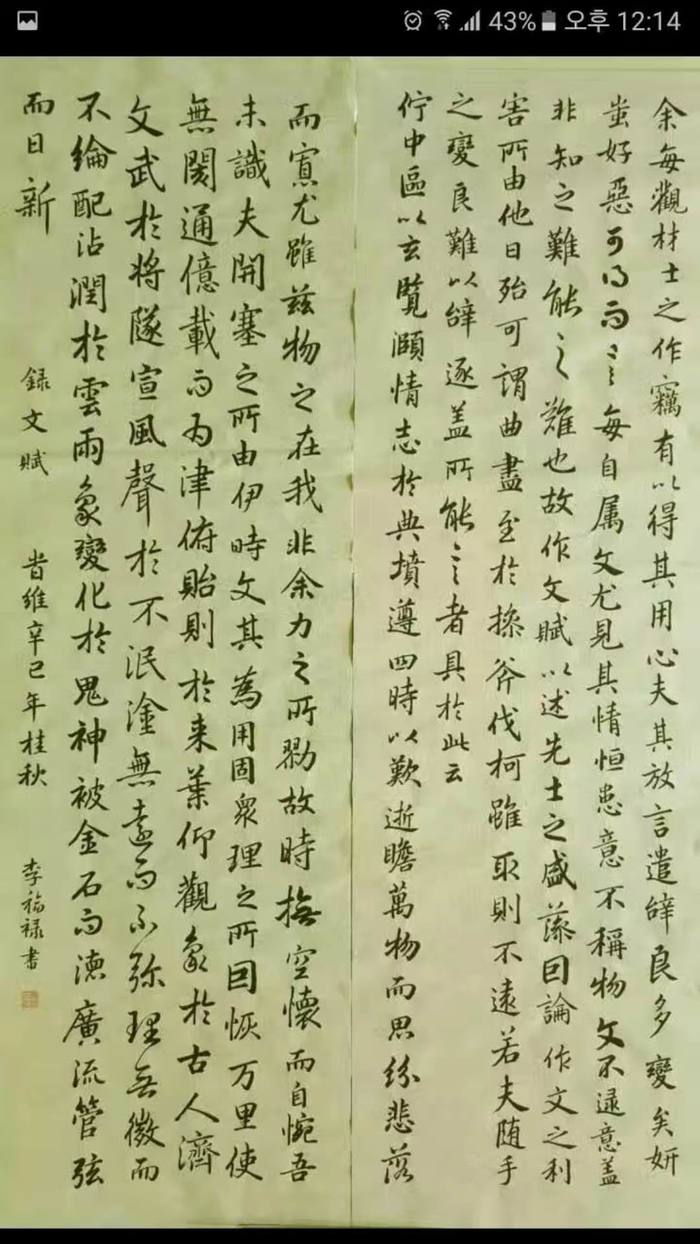 43% 오후 12:14
余每觀材士之作竊有以得其用心夫其放言遣辭良多變矣妍
蚩好惡可得而言每自属文尤見其情恒患意不稱物文不逮意盖
非知之難能之難也故作文賦以述先士之盛藻因論作文之利
害所由他日殆可謂曲盡至於操斧伐柯雖取則不遠若夫随手
之變良難以辭逐盖所能言者具於此云
佇中區以玄覽頤情志於典墳遵四時以歎逝瞻萬物而思紛悲落
而寡尤雖兹物之在我非余力之所勠故時撫空懷而自惋吾
未識夫開塞之所由伊時文其為用固衆理之所因恢万里使
無閡通億載而为津俯貽則於来葉仰觀象於古人濟
文武於將隊宣風聲於不泯塗無遠而不弥理無微而
不綸配沾潤於雲雨象變化於鬼神被金石而德廣流管弦
而日新 錄文賦 昔維辛巳年桂秋 李福禄書